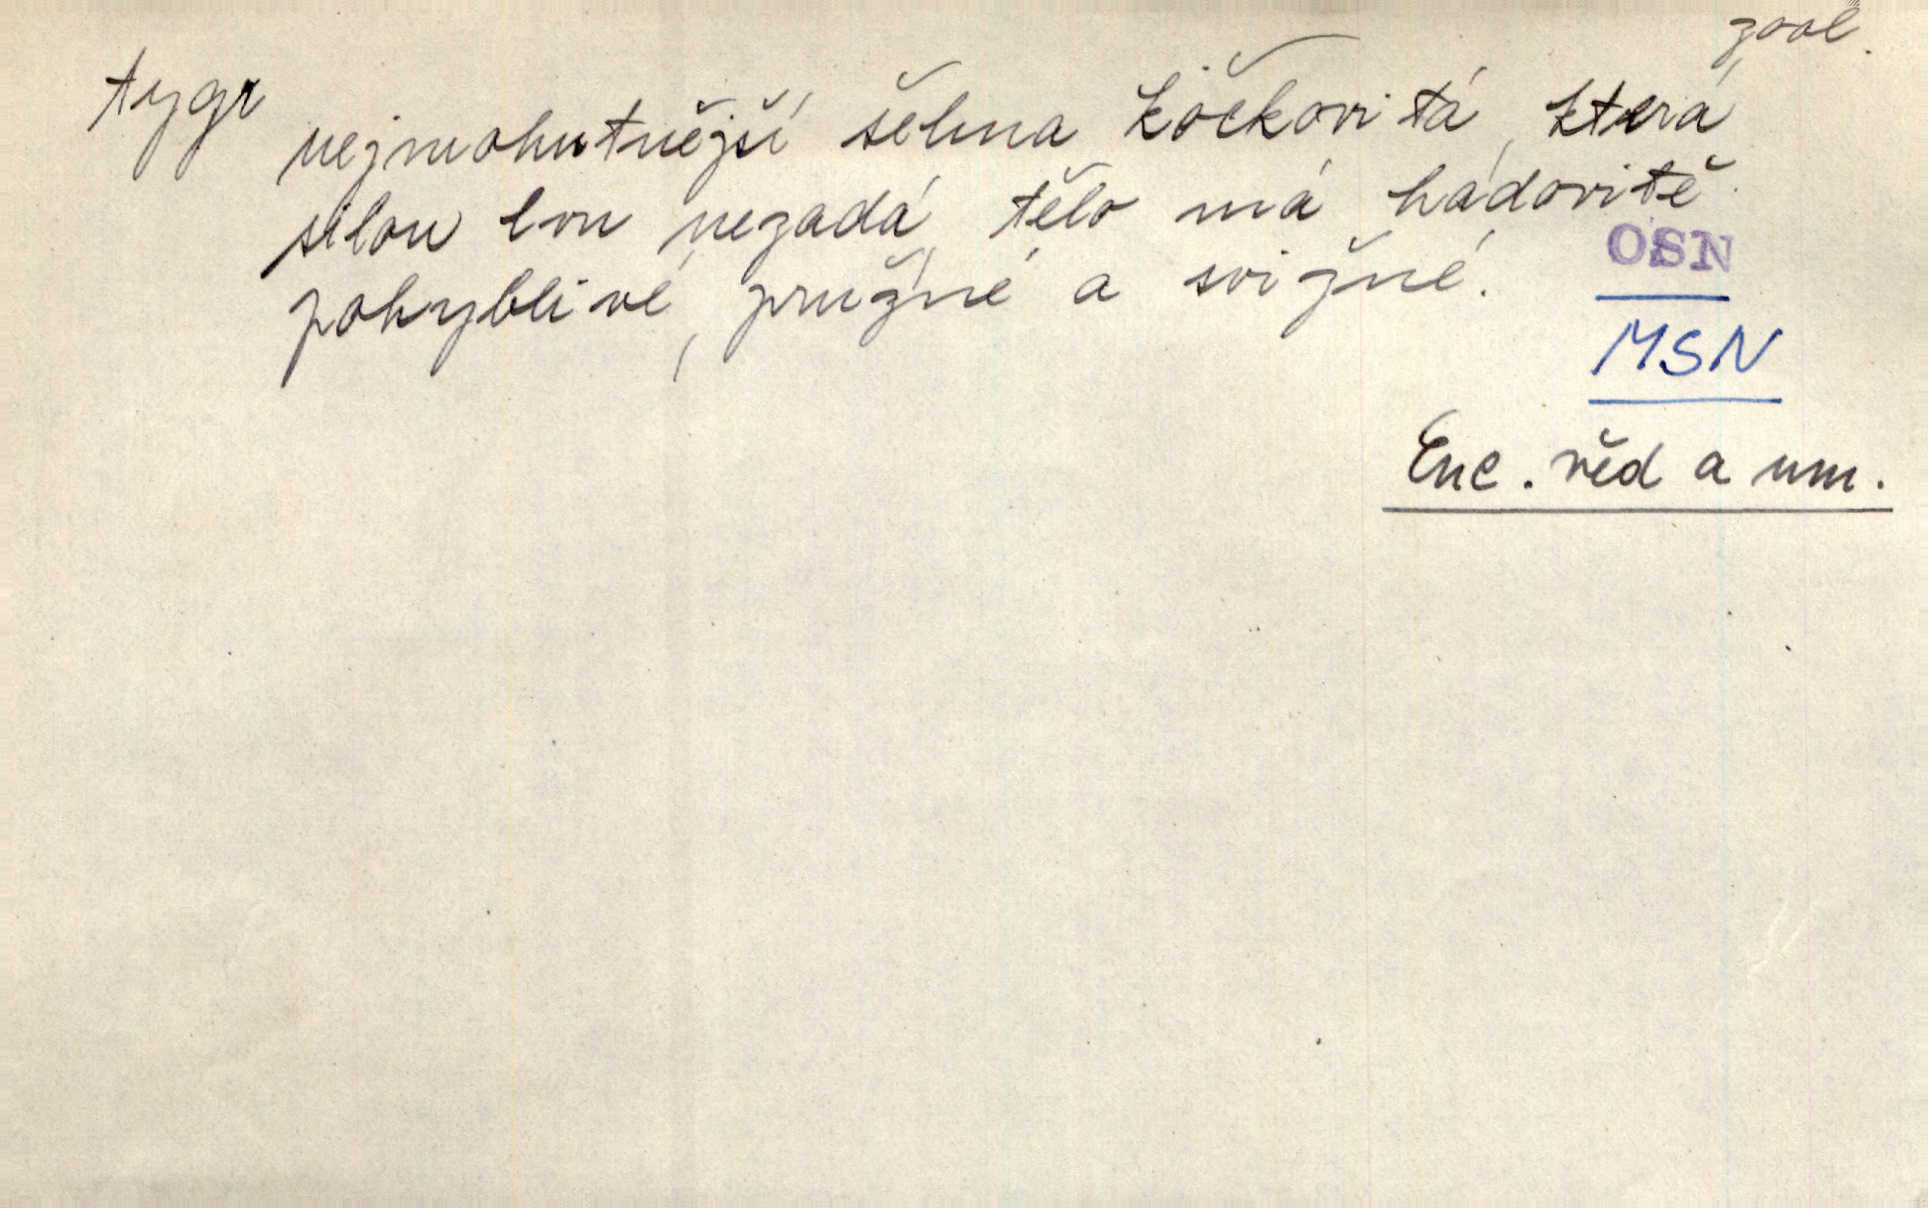 zool.
tygr
nejmohutnější šelma kočkovitá, která
silou lvu nezadá, tělo má hadovitě
pohyblivé, pružné a svižné.
OSN
MSN
Enc. věd a um.